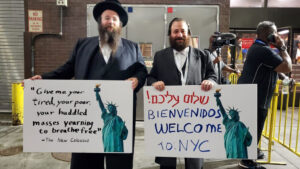 "Give me your
tired, your poor,
your huddled
masses yearning
to breathe free"
-The New Colossus
שלום עליכם!
BIENVENIDOS
WELCOME
TO NYC